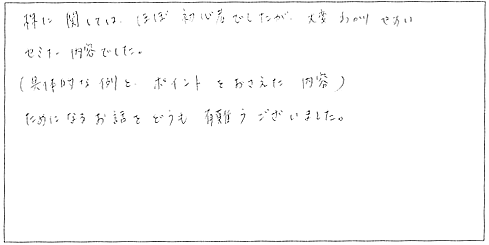 株に関しては、ほぼ初心者でしたが、大変わかりやすい
セミナー内容でした。
(具体的な例と、ポイントをおさえた内容)
ためになるお話をどうも有難うございました。